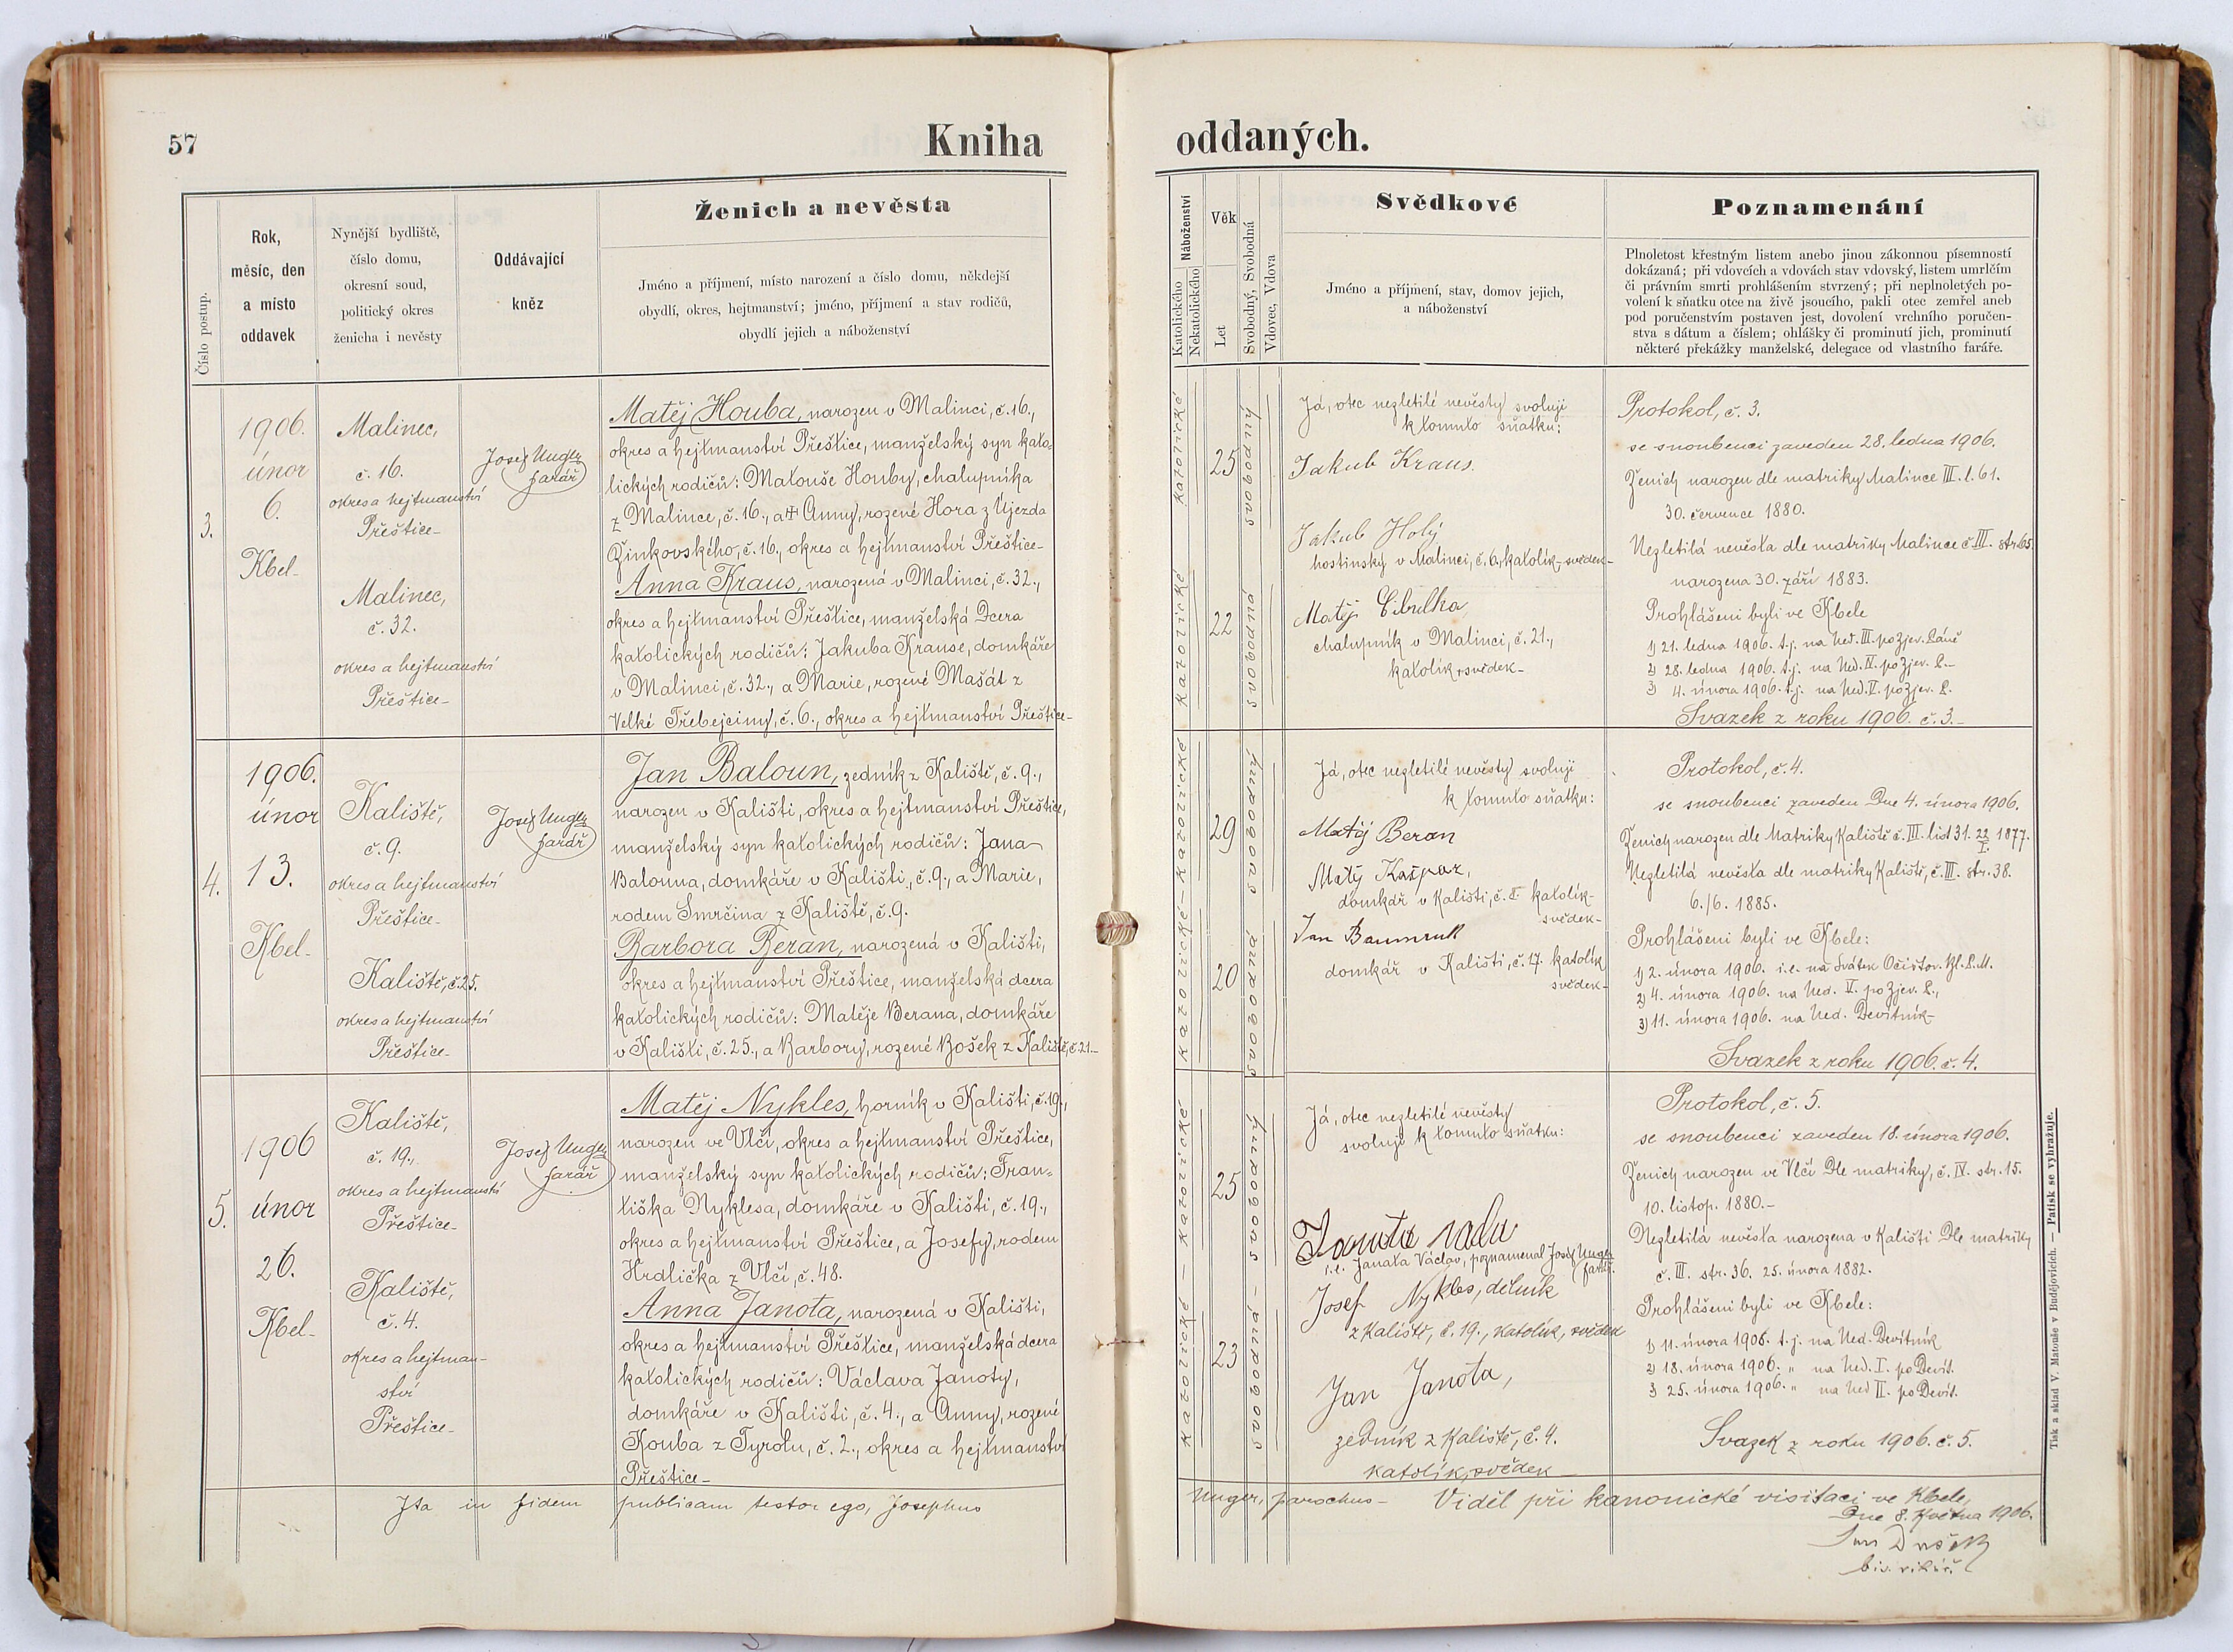 57
Kniha
oddaných.
Číslo postup.
Rok,
měsíc, den
a místo
oddavek
Nynější bydliště,
číslo domu,
okresní soud,
politický okres
ženicha i nevěsty
Oddávající
kněz
Ženich a nevěsta
Jméno a příjmení, místo narození a číslo domu, někdejší
obydlí, okres, hejtmanství; jméno, příjmení a stav rodičů,
obydlí jejich a náboženství
Náboženství
Katolického
Nekatolického
Věk
Let
Svobodný, Svobodná
Vdovec, Vdova
Svědkové
Jméno a příjmení, stav, domov jejich,
a náboženství
Poznamenání
Plnoletost křestným listem anebo jinou zákonnou písemností
dokázaná; při vdovcích a vdovách stav vdovský, listem umrlčím
či právním smrti prohlášením stvrzený; při neplnoletých po-
volení k sňatku otce na živě jsoucího, pakli otec zemřel aneb
pod poručenstvím postaven jest, dovolení vrchního poručen-
stva s dátum a číslem; ohlášky či prominutí jich, prominutí
některé překážky manželské, delegace od vlastního faráře.
3.
1906.
únor
6.
Kbel-
Malinec,
č. 16.
okres a hejtmanství
Přeštice-
Malinec,
č. 32.
okres a hejtmanství
Přeštice-
Josef Unger
farář
Matěj Houba, narozen v Malinci, č. 16.,
okres a hejtmanství Přeštice, manželský syn kato-
lických rodičů: Matouše Houby, chalupníka
z Malince, č. 16., a † Anny, rozené Hora z Újezda
Žinkovského, č. 16., okres a hejtmanství Přeštice-
Anna Kraus, narozená v Malinci, č. 32.,
okres a hejtmanství Přeštice, manželská dcera
katolických rodičů: Jakuba Krause, domkáře
v Malinci, č. 32., a Marie, rozené Mašát z
Velké Třebejciny, č. 6., okres a hejtmanství Přeštice-
katolické
25
svobodný
katolické
22
svobodná
Já, otec nezletilé nevěsty svoluji
k tomuto sňatku:
Jakub Kraus.
Jakub Holý
hostinský v Malinci, č. 6., katolík, svědek-
Matěj Cibulka,
chalupník v Malinci, č. 21.,
katolík, svědek-
Protokol, č. 3.
se snoubenci zaveden 28. ledna 1906.
Ženich narozen dle matriky Malince III. l. 61.
30. července 1880.
Nezletilá nevěsta dle matriky Malince č. III. str. 65.
narozena 30. září 1883.
Prohlášeni byli ve Kbele
1) 21. ledna 1906. t. j. na Ned. III. po Zjev. Páně
2) 28. ledna 1906. t. j. na Ned. IV. po Zjev. P.-
3) 4. února 1906. t. j. na Ned. V. po Zjev. P.
Svazek z roku 1906. č. 3.-
4.
1906.
únor
13.
Kbel-
Kaliště,
č. 9.
okres a hejtmanství
Přeštice-
Kaliště, č. 25.
okres a hejtmanství
Přeštice-
Josef Unger
farář
Jan Baloun, zedník z Kaliště, č. 9.,
narozen v Kališti, okres a hejtmanství Přeštice,
manželský syn katolických rodičů: Jana
Balouna, domkáře v Kališti, č. 9., a Marie,
rodem Smrčina z Kaliště, č. 9.
Barbora Beran, narozená v Kališti,
okres a hejtmanství Přeštice, manželská dcera
katolických rodičů: Matěje Berana, domkáře
v Kališti, č. 25., a Barbory, rozené Bošek z Kaliště, č. 21.-
katolické
29
svobodný
katolické
20
svobodná
Já, otec nezletilé nevěsty svoluji
k tomuto sňatku:
Matěj Beran
Matěj Kašpar,
domkář v Kališti, č. katolík-
svědek-
Jan
domkář v Kališti, č. 17. katolík
svědek-
Protokol, č. 4.
se snoubenci zaveden Dne 4. února 1906.
Ženich narozen dle Matriky Kaliště č. III. list 31. 22/I. 1877.
Nezletilá nevěsta dle matriky Kališti, č. III. str. 38.
6./6. 1885.
Prohlášeni byli ve Kbele:
1) 2. února 1906. i. e. na Svátek Očišťov. Bl. P. M.
2) 4. února 1906. na Ned. V. po Zjev. P.,
3) 11. února 1906. na Ned. Devítník-
Svazek z roku 1906. č. 4.
5.
1906
únor
26.
Kbel-
Kaliště,
č. 19.,
okres a hejtmanství
Přeštice-
Kaliště,
č. 4.
okres a hejtman-
ství
Přeštice-
Josef Unger
farář
Matěj Nykles, horník v Kališti, č. 19.,
narozen ve Vlčí, okres a hejtmanství Přeštice,
manželský syn katolických rodičů: Fran-
tiška Nyklesa, domkáře v Kališti, č. 19.,
okres a hejtmanství Přeštice, a Josefy, rodem
Hrdlička z Vlčí, č. 48.
Anna Janota, narozená v Kališti,
okres a hejtmanství Přeštice, manželská dcera
katolických rodičů: Václava Janoty,
domkáře v Kališti, č. 4., a Anny, rozené
Kouba z Tyrolu, č. 2., okres a hejtmanství
Přeštice-
katolické
25
svobodný
katolické
23
svobodná
Já, otec nezletilé nevěsty
svoluji k tomuto sňatku:
i. e. Janata Václav, poznamenal Josef Unger
farář.
Josef Nykles, dělník
z Kaliště, č. 19., katolík, svědek
Jan Janota,
zedník z Kaliště, č. 4.
katolík, svědek-
Protokol, č. 5.
se snoubenci zaveden 18. února 1906.
Ženich narozen ve Vlčí Dle matriky, č. IV. str. 15.
10. listop. 1880.-
Nezletilá nevěsta narozena v Kališti Dle matriky
č. III. str. 36. 25. února 1882.
Prohlášeni byli ve Kbele:
1) 11. února 1906. t. j. na Ned. Devítník
2) 18. února 1906. " na Ned. I. po Devít.
3) 25. února 1906. " na Ned II. po Devít.
Svazek z roku 1906. č. 5.
Ita in fidem publicam testor ego, Josephus
Unger, parochus- Viděl při kanonické visitaci ve Kbele,
Dne 8. Května 1906.
Jan Dušek
bis. vikář.
Tisk a sklad V. Matouše v Budějovicích. — Patisk se vyhražuje.